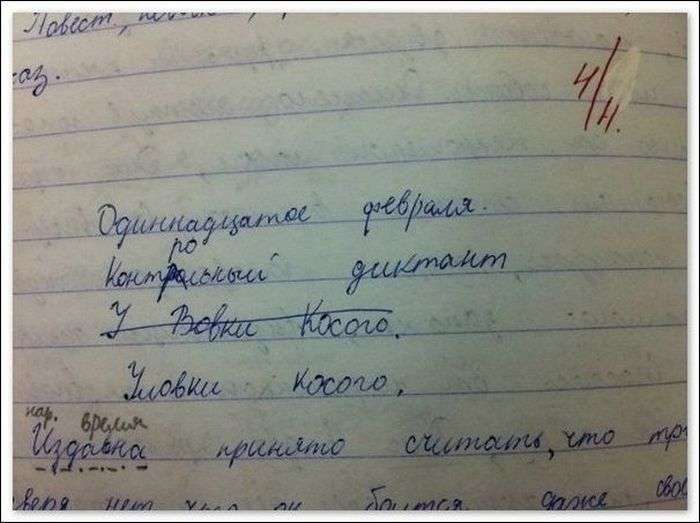 Повест
аз.
4/4.
Одиннадцатое февраля.
ро
Контрольный диктант
У Вовки Косого.
Уловки Косого.
нар. время
Издавна принято считать, что
веря нет
боится даже сво